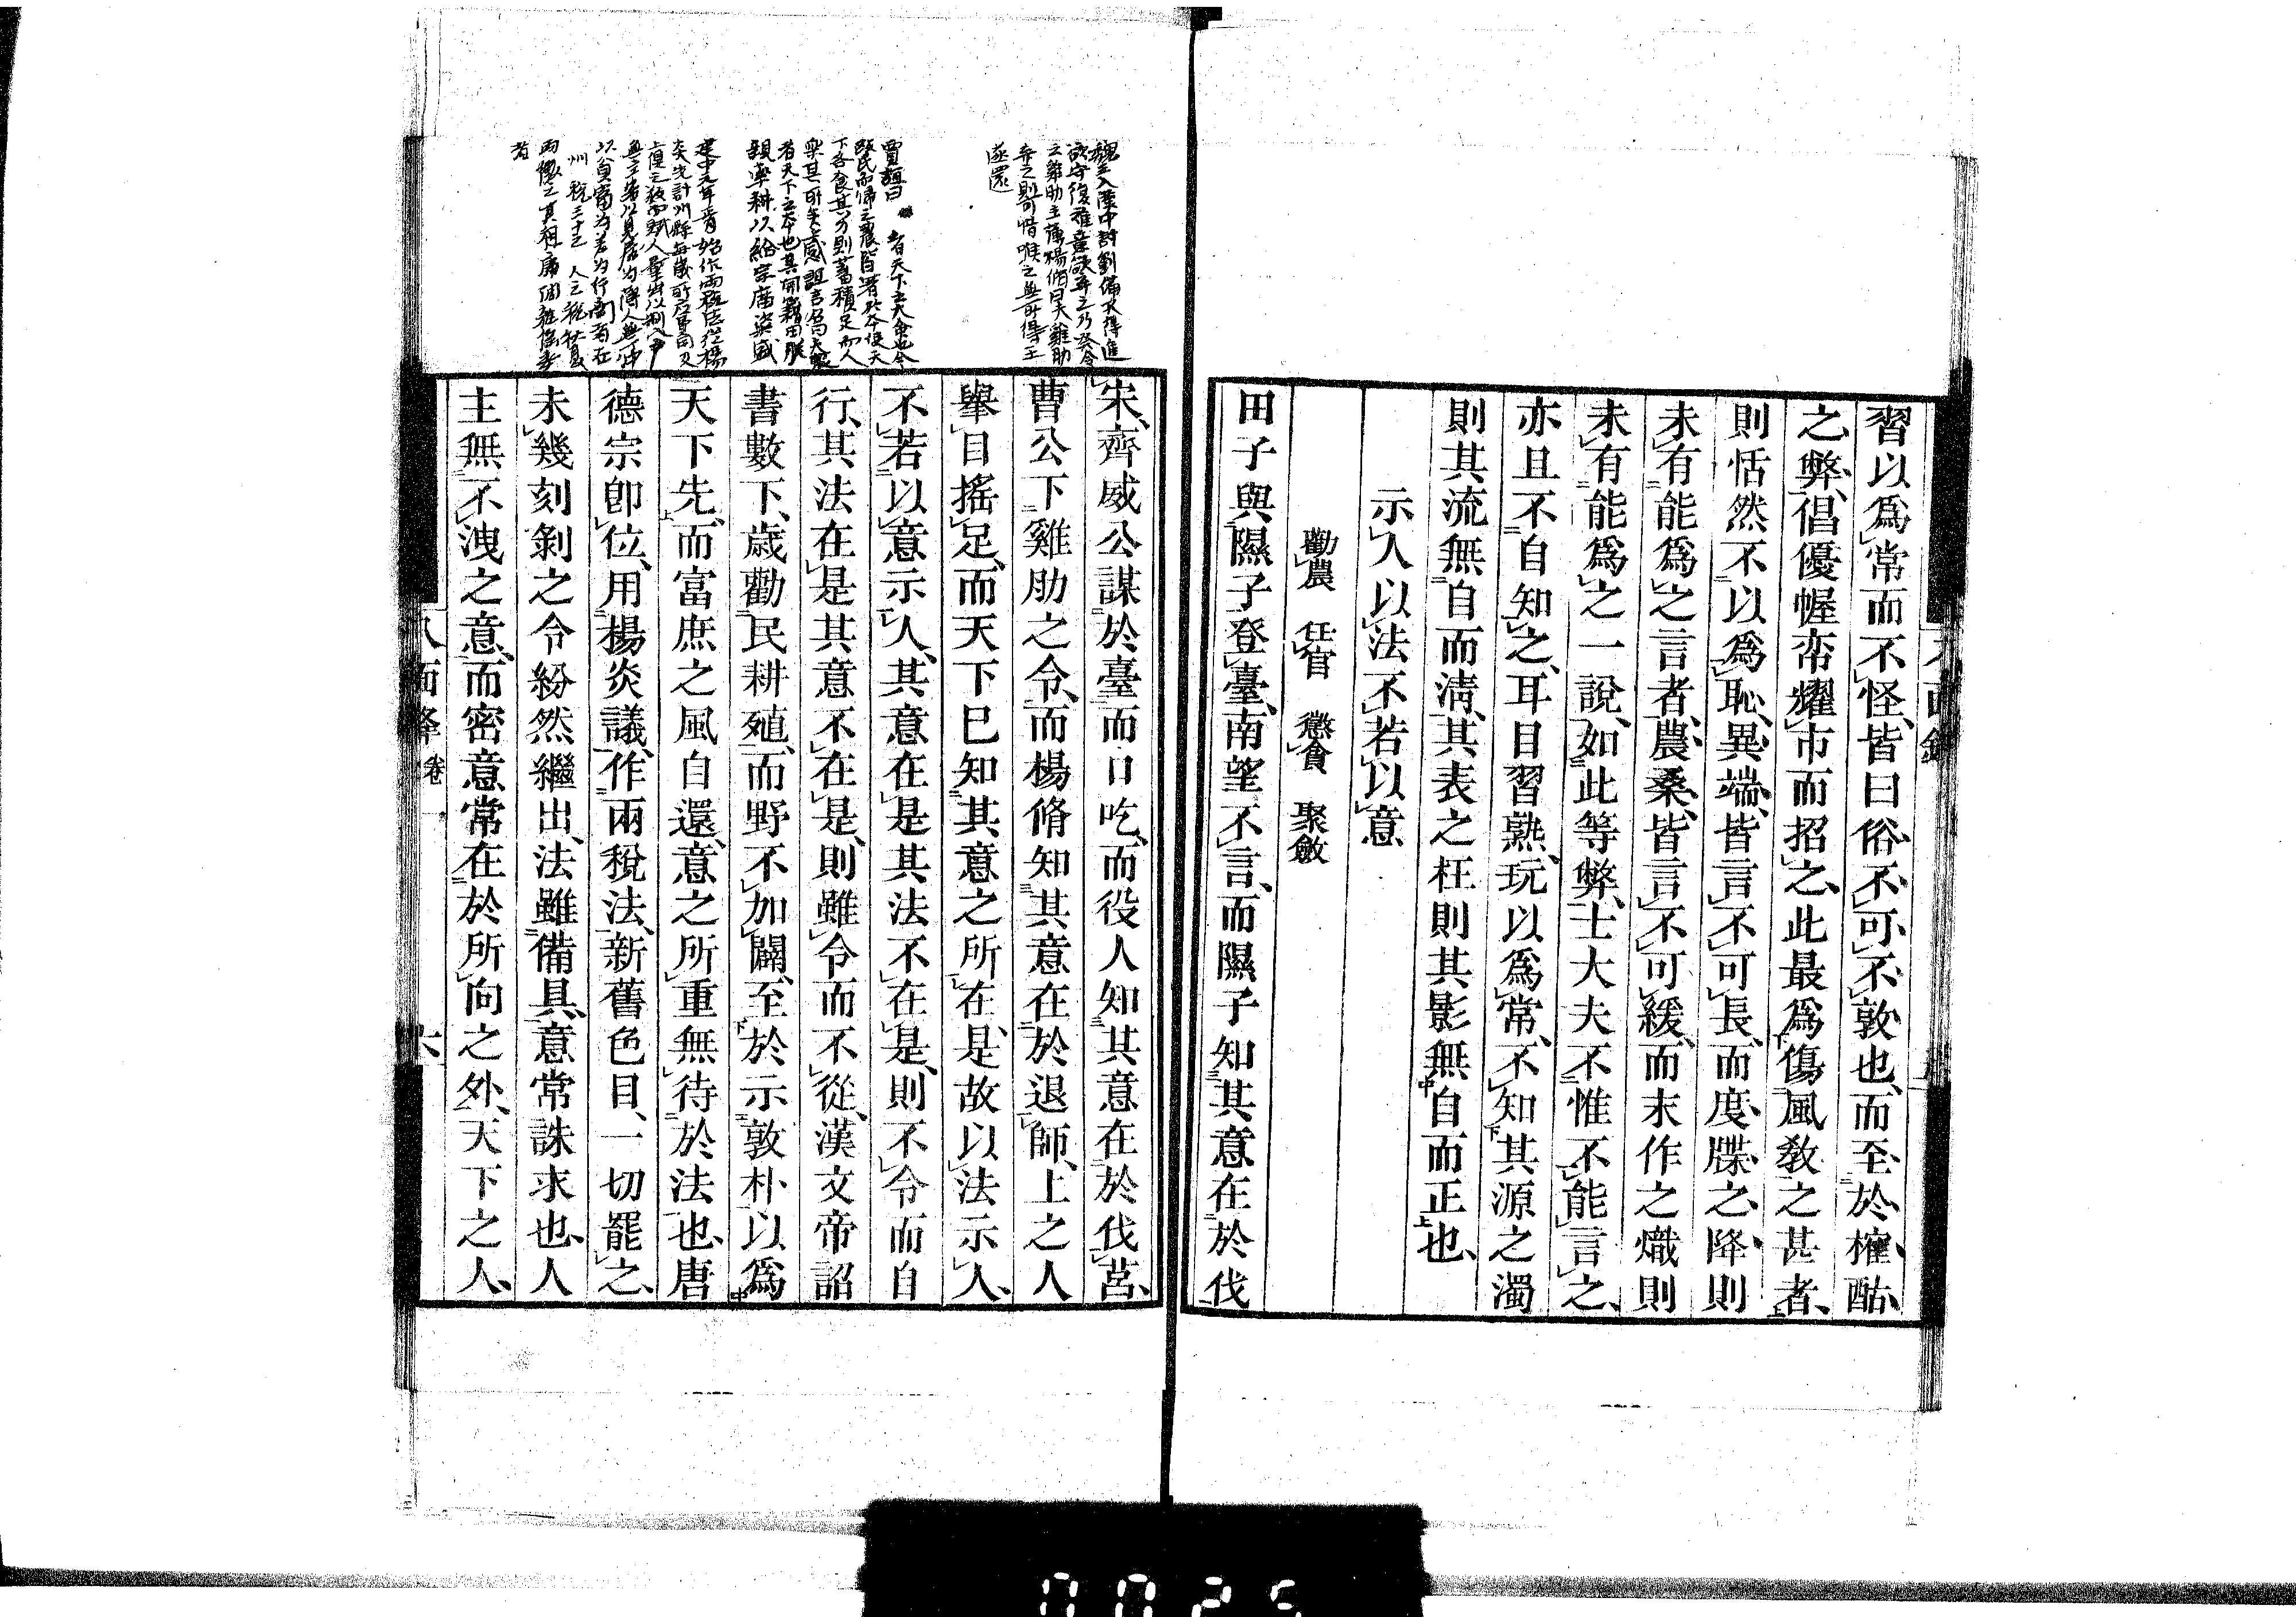 習以爲常而不怪皆曰俗不可不敦也而至於榷酤
之弊倡優幄帟耀市而招之此最爲傷風敎之甚者
則恬然不以爲恥異端皆言不可長而度牒之降則
未有能爲之言者農桑皆言不可緩而末作之熾則
未有能爲之一說如此等弊士大夫不惟不能言之
亦且不自知之耳目習熟玩以爲常不知其源之濁
則其流無自而淸其表之枉則其影無自而正也
示人以法不若以意
勸農 任官 懲貪 聚斂
田子與隰子登臺南望不言而隰子知其意在於伐
宋齊威公謀於臺而口吃而役人知其意在於伐莒
曹公下雞肋之令而楊脩知其意在於退師上之人
擧目搖足而天下已知其意之所在是故以法示人
不若以意示人其意在是其法不在是則不令而自
行其法在是其意不在是則雖令而不從漢文帝詔
書數下歲勸民耕殖而野不加闢至於示敦朴以爲
天下先而富庶之風自還意之所重無待於法也唐
德宗卽位用楊炎議作兩稅法新舊色目一切罷之
未幾刻剝之令紛然繼出法雖備具意常誅求也人
主無不洩之意而密意常在於所向之外天下之人
八面鋒 卷一 六
魏王入漢中討劉備不得進
欲守復難意欲弃之乃發令
之雞肋主簿楊脩曰夫雞肋
弃之則可惜啖之無可得王
遂還
賈誼曰 者天下之大命也今
歐民而歸之農皆著於本使天
下各食其力則蓄積足而人
樂其所矣上感誼言詔曰夫農
者天下之本也其開籍田朕
親率耕以給宗廟粢盛
0025